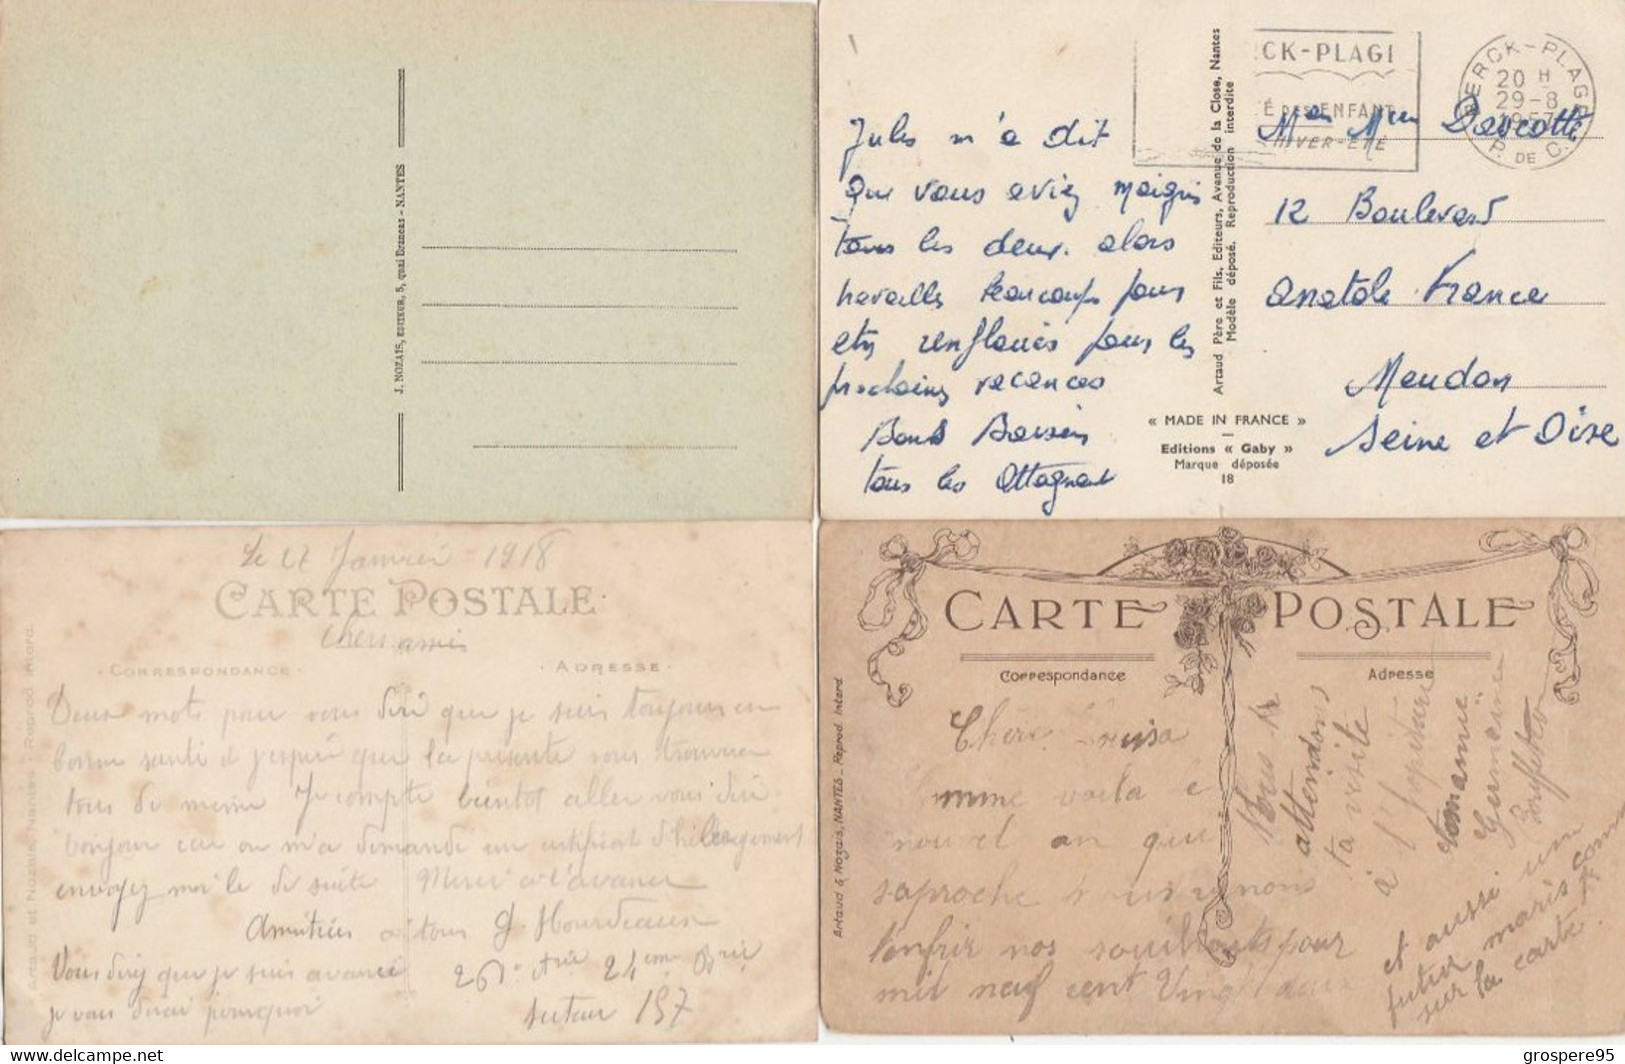 J. NOZAIS, EDITEUR, 5, quai Brancas - NANTES
CK-PLAGI
É DES ENFANT
HIVER-ÉTÉ
BERCK-PLAGE
20 H
29-8
1957
P. DE C.
Jules m'a dit
que vous aviez maigris
tous les deux. alors
travaillez beaucoup pour
etre renfloués pour les
prochaines vacances
Bons Baisers
tous les
Artaud Père et Fils, Editeurs, Avenue de la Close, Nantes
Modèle déposé. Reproduction interdite
« MADE IN FRANCE »
Editions « Gaby »
Marque déposée
18
12 Boulevard
Anatole France
Meudon
Seine et Oise
Le 27 Janvier 1918
CARTE POSTALE
Chers amis
CORRESPONDANCE
ADRESSE
Artaud et Nozais, Nantes - Reprod. Interd.
Deux mots pour vous dire que je suis toujours en
bonne santé et j'espère que la présente vous trouvera
tous de meme Je compte bientot aller vous dire
bonjour car on m'a demandé un certificat d'hébergement
envoyez moi le de suite Merci a l'avance
Amitiées a tous G. Hourdeaux
Vous direz que je suis avancé
je vous dirai pourquoi
261e Arie 24eme Brie
secteur 157
CARTE POSTALE
Correspondance
Adresse
Artaud & Nozais, NANTES - Reprod. Interd
Chère Louisa
comme voila le
nouvel an qui
saproche nous venons
t'enfrir nos souillants pour
mil neuf cent Vingt deux
Nous
attendons
ta visite
à l'hopital
Germaine
et aussi un
futur maris comme
sur la carte.
grospere95